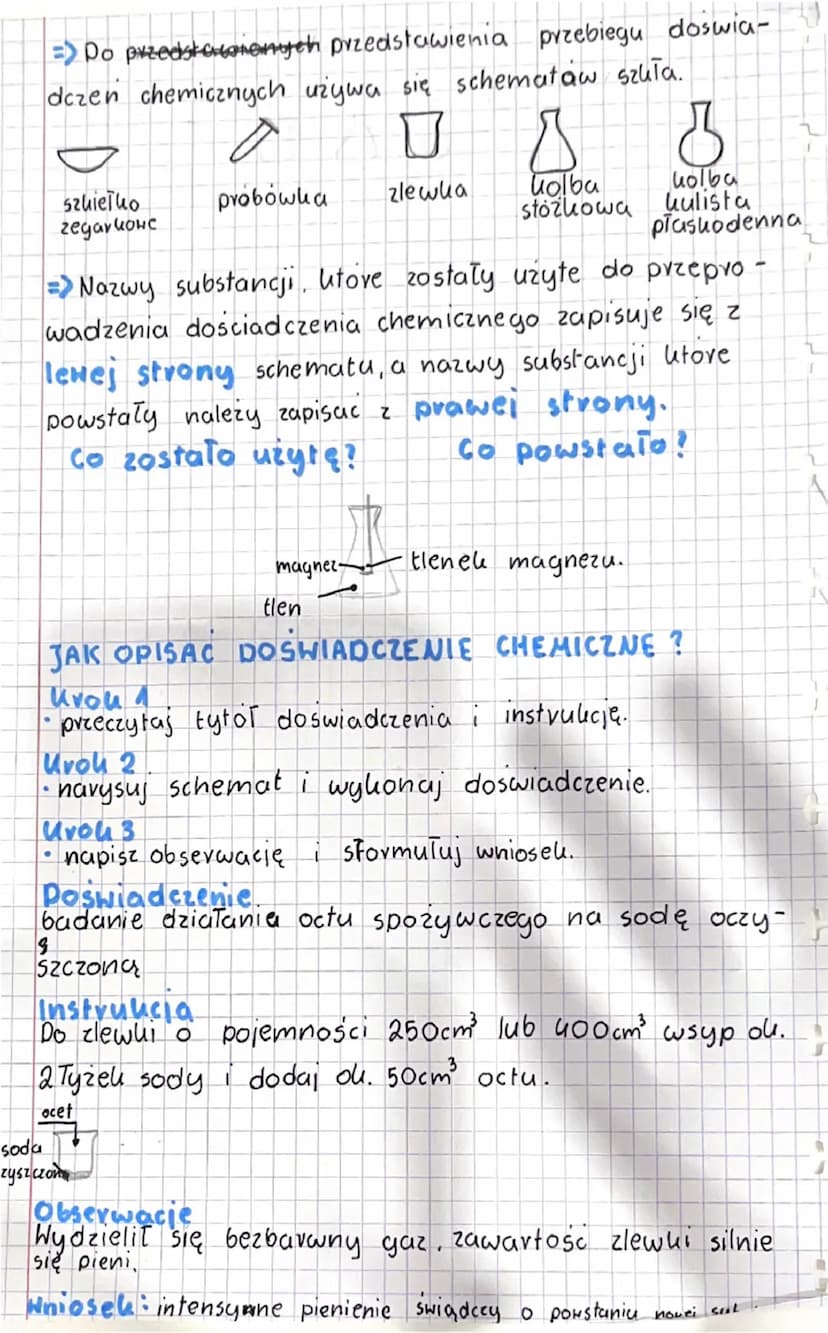 => Do przedstawionych przedstawienia przebiegu doświa-
dczeń chemicznych używa się schematów szkła.
szkiełko
zegarkowe
probówka
zlewka
kolba
stożkowa
kolba
kulista
płaskodenna
=> Nazwy substancji, które zostały użyte do przepro-
wadzenia dościadczenia chemicznego zapisuje się z
lewej strony schematu, a nazwy substancji które
powstały należy zapisać z prawej strony.
Co zostało użytę? Co powstało?
magnez
tlenek magnezu.
tlen
JAK OPISAĆ DOŚWIADCZENIE CHEMICZNE?
Krok 1
• przeczytaj tytół doświadczenia i instrukcję.
Krok 2
• narysuj schemat i wykonaj doświadczenie.
Krok 3
• napisz obserwację i sformułuj wniosek.
Doświadczenie.
badanie działania octu spożywczego na sodę oczy-
szczoną
Instrukcja
Do zlewki o pojemności 250cm³ lub 400cm³ wsyp ok.
2 łyżek sody i dodaj ok. 50cm³ octu.
ocet
soda
zyszczona
Obserwacje
Wydzielił się bezbarwny gaz, zawartość zlewki silnie
się pieni.
Wniosek: intensywne pienienie świądczy o powstaniu nowej